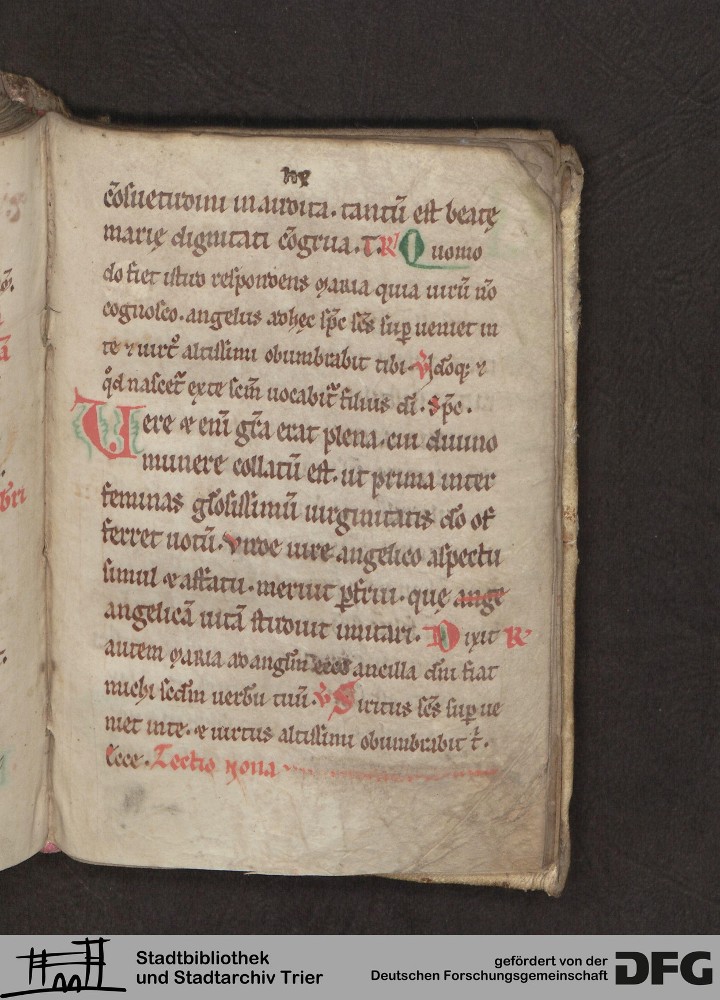 cõsuetudini inaudita. tantũ est beatę
marię dignitati cõgrua. T. R' Quomo
do fiet istud respondens maria quia uirũ nõ
cognosco. angelus ad hęc sp̃c sc̃s sup̱ueniet in
te ⁊ uirt᷒ altissimi obumbrabit tibi. V' Ideoq; ⁊
q̇d nascet᷒ ex te sc̃m uocabit᷒ filius di̅. Sp̃c.
Uere & eni̅ gr̃a erat plena. cui diuino
munere collatũ est. ut prima inter
feminas gl̃osissimũ uirginitatis do̅ of
ferret uotũ. Vnde iure angelico aspectu
simul & affatu. meruit p̱frui. que ange
angelicã uitã studuit imitari. Dixit R'
autem maria ad angl̃m ecce ancilla dñi fiat
michi scd̃m uerbũ tuũ. V' Spiritus sc̃s sup̱ue
niet in te. & uirtus altissimi obumbrabit t̃.
Ecce. Lectio nona
Stadtbibliothek
und Stadtarchiv Trier
gefördert von der
Deutschen Forschungsgemeinschaft
DFG